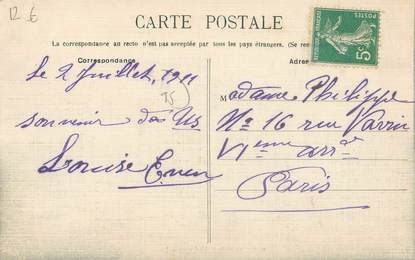 12 €
CARTE POSTALE
La correspondance au recto n'est pas acceptée par tous les pays étrangers. (Se ren
Correspondance
Adre
REPUBLIQUE FRANÇAISE
5c
POSTES
Le 2 Juillet, 1911
souvenir des Us
Louise
Madame Philippe
No 16 rue Vavin
VIeme arr
Paris